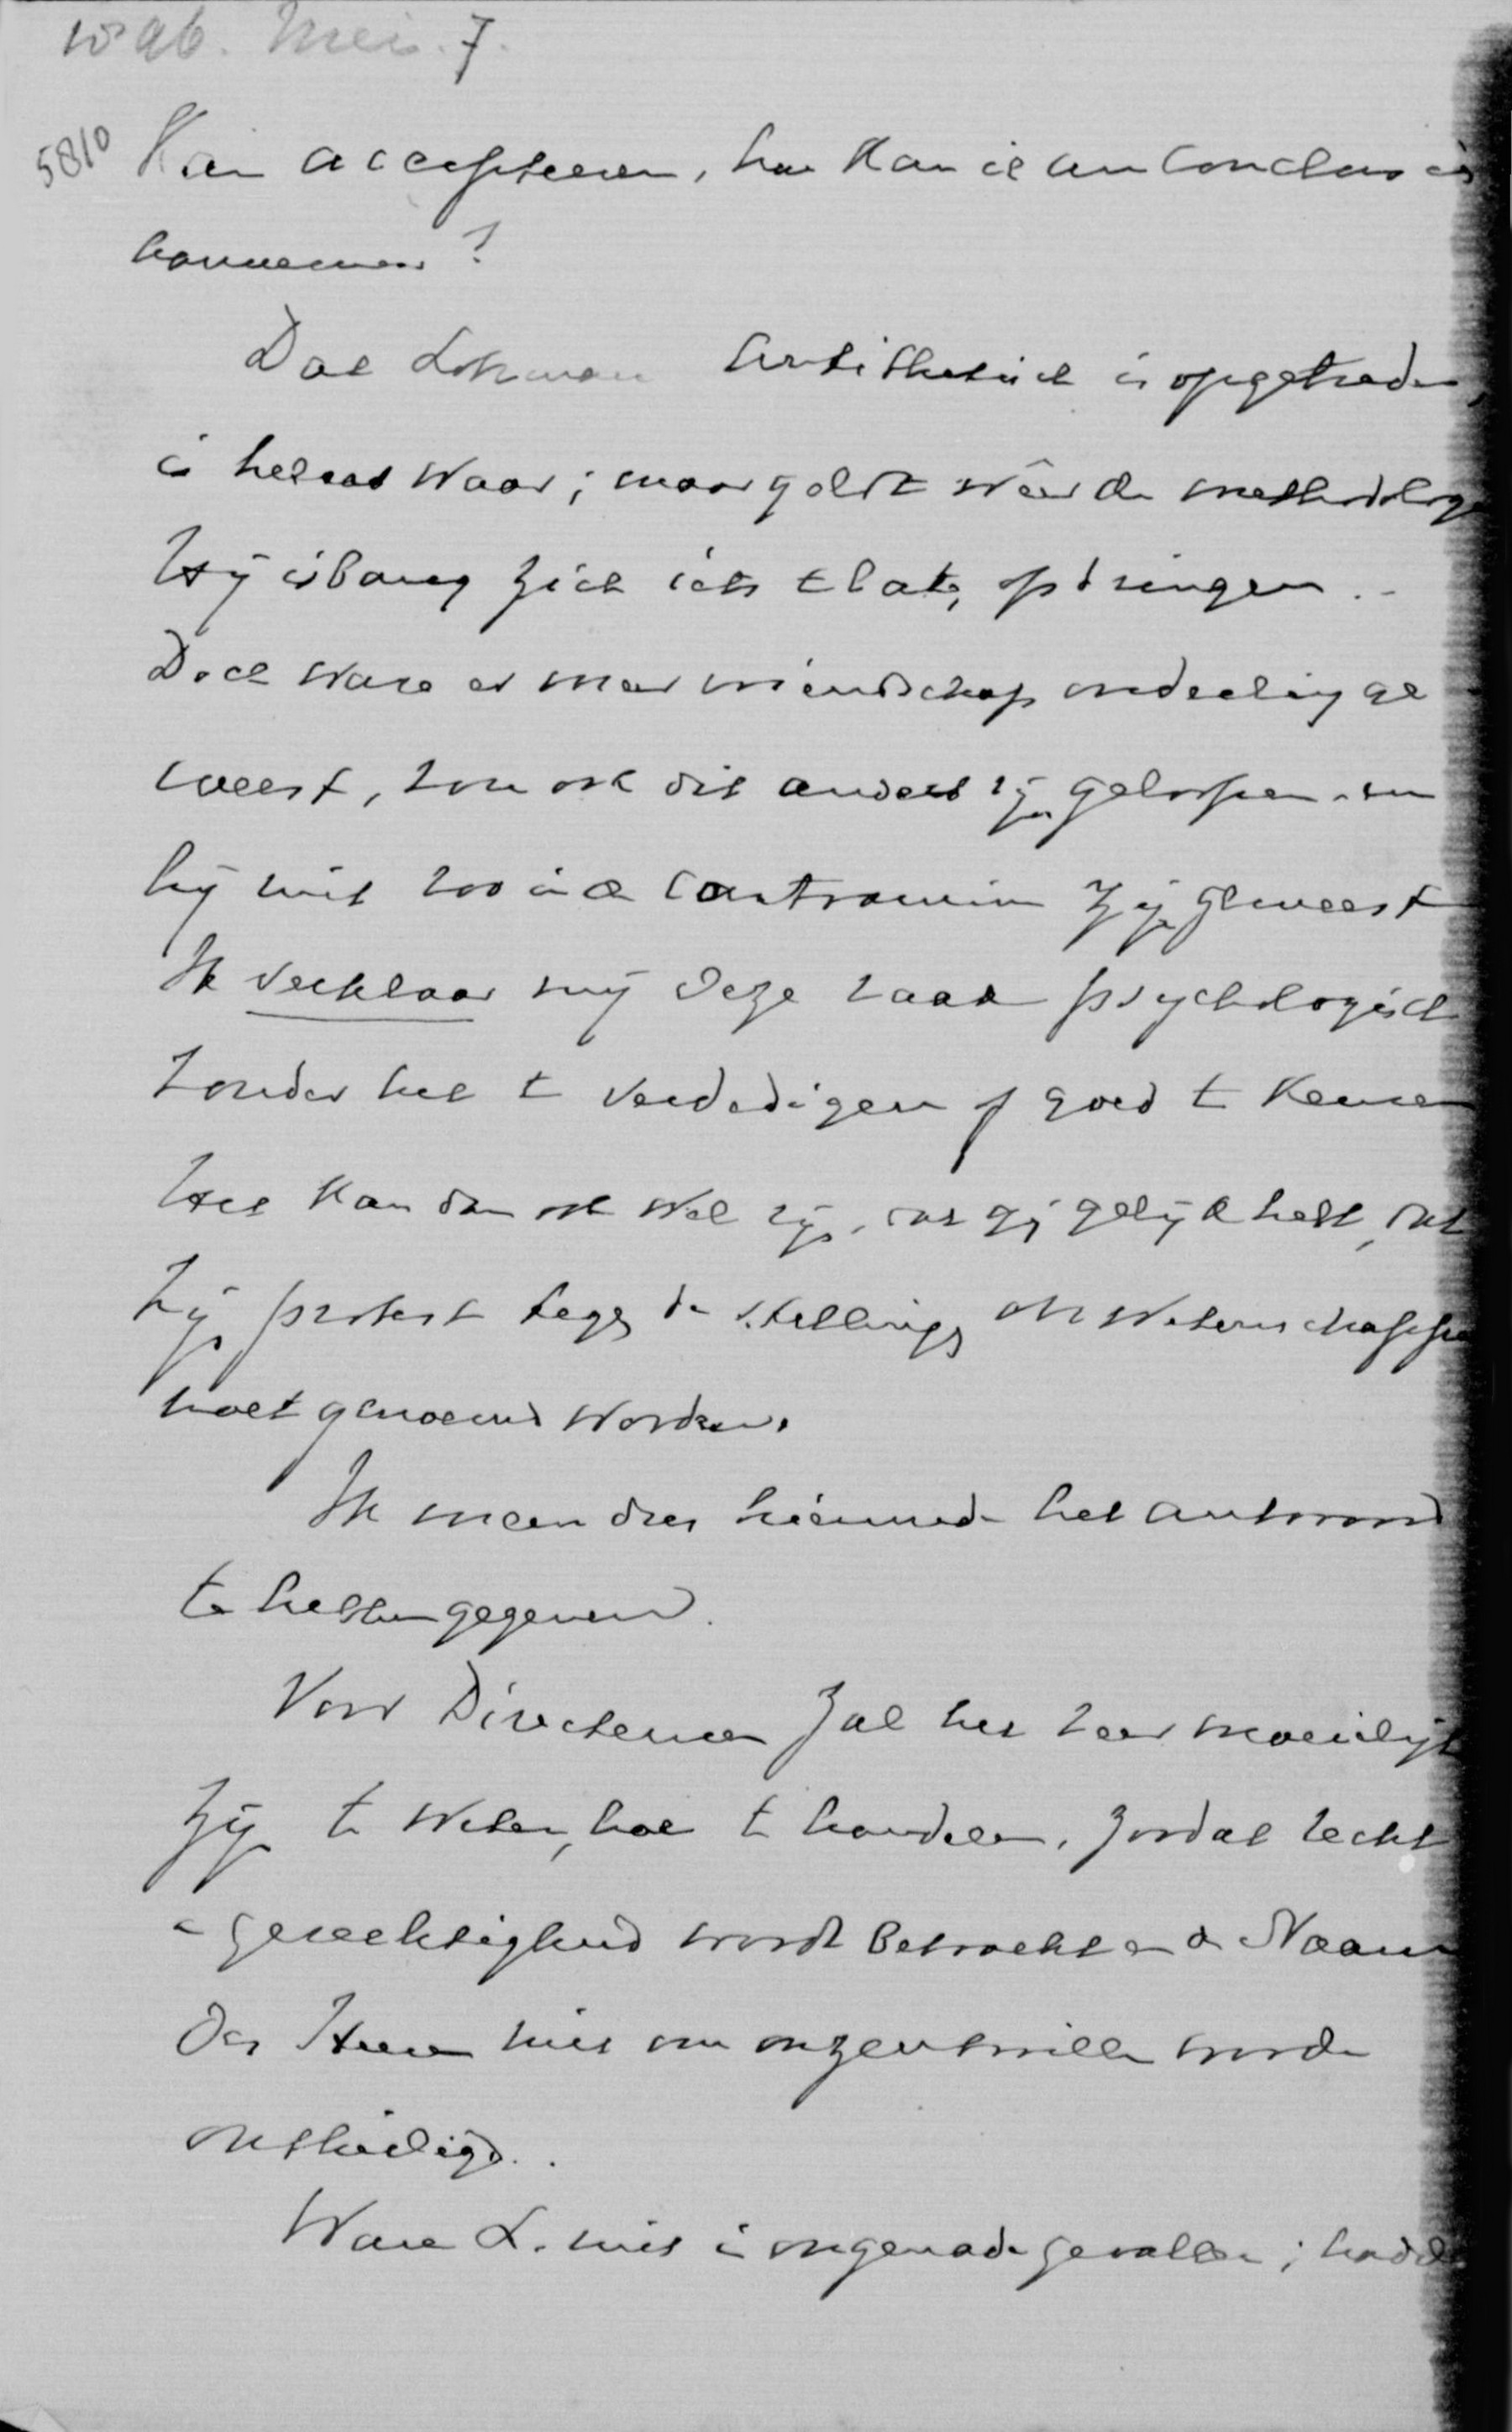 w 96. Mei. 7.
5810
kan accepteeren, hoe kan ik uw conclusie
aannemen?
Dat Lohman antithetisch is opgetreden,
is helaas waar; maar geldt wêer de methodologie
Hij is bang zich iets te laten opdringen..
Doch ware er meer vriendschap onderling ge
weest, zou ook dit anders zijn geloopen en
hij niet zoo in de contramine zijn geweest
Ik verklaar mij deze zaak psychologisch
zonder het te verdedigen of goed te keuren
Het kan dan ook wel zijn, dat gij gelijk hebt, dat
zijn protest tegen de stellingen onwetenschappe
moet genoemd worden.
Ik meen dus hiermede het antwoord
te hebben gegeven.
Voor Directeuren zal het zeer moeielijk
zijn te weten, hoe te handelen, zoodat recht
en gerechtigheid wordt betracht en de Naam
des Heeren niet om onzentwille worde
ontheiligd..
Ware L. niet in ongenade gevallen; hadde